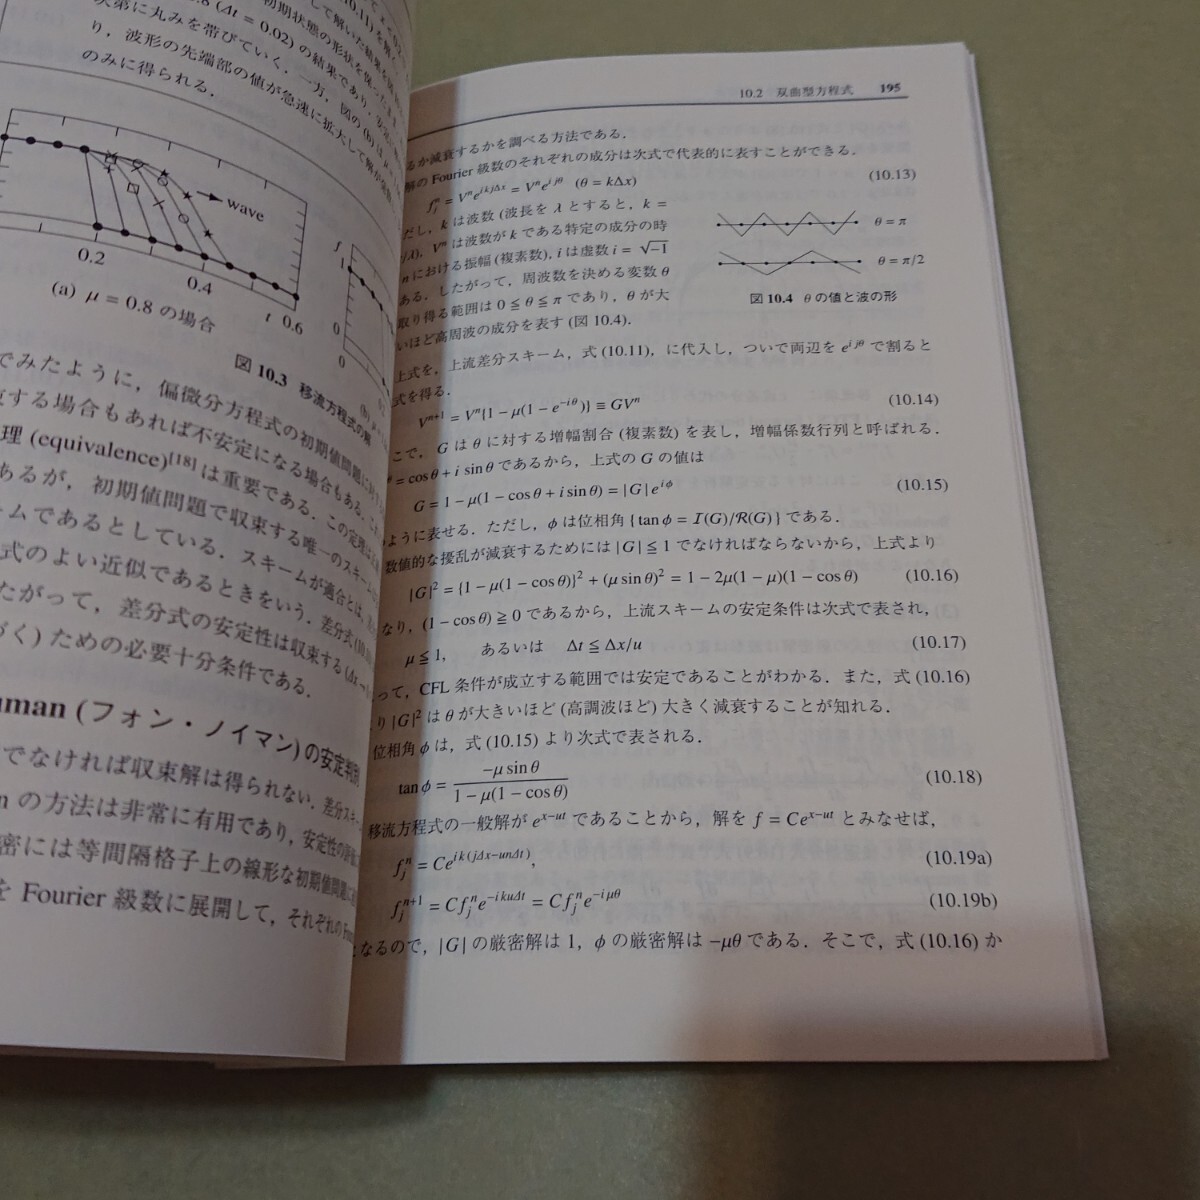 .8 (Δt = 0.02) の結果であり，安定に
次第に丸みを帯びていく．一方，図の (b) は μ =
り，波形の先端部の値が急速に拡大して解が
のみに得られる．
wave
0.2
0.4
t 0.6
(a) μ = 0.8 の場合
f
1
0
0
(b)
図 10.3 移流方程式の解
でみたように，偏微分方程式の初期値問題に
する場合もあれば不安定になる場合もある．
理 (equivalence)[18] は重要である．この定理は
あるが，初期値問題で収束する唯一のスキーム
ームであるとしている．スキームが適合とは，
式のよい近似であるときをいう．差分式 (10.
たがって，差分式の安定性は収束する (Δx→
づく) ための必要十分条件である．
uman (フォン・ノイマン) の安定判別
でなければ収束解は得られない．差分スキー
n の方法は非常に有用であり，安定性の評価
密には等間隔格子上の線形な初期値問題に
を Fourier 級数に展開して，それぞれの F
10.2 双曲型方程式 195
るか減衰するかを調べる方法である．
解の Fourier 級数のそれぞれの成分は次式で代表的に表すことができる．
f_j^n = V^n e^{ikjΔx} = V^n e^{ijθ} (θ = kΔx) (10.13)
だし，k は波数 (波長を λ とすると，k =
/λ)，V^n は波数が k である特定の成分の時
n における振幅 (複素数)，i は虚数 i = √−1
ある．したがって，周波数を決める変数 θ
取り得る範囲は 0 ≦ θ ≦ π であり，θ が大
いほど高周波の成分を表す (図 10.4)．
θ = π
θ = π/2
図 10.4 θ の値と波の形
上式を，上流差分スキーム，式 (10.11)，に代入し，ついで両辺を e^{ijθ} で割ると
式を得る．
V^{n+1} = V^n{1 − μ(1 − e^{−iθ})} ≡ GV^n (10.14)
こで，G は θ に対する増幅割合 (複素数) を表し，増幅係数行列と呼ばれる．
= cos θ + i sin θ であるから，上式の G の値は
G = 1 − μ(1 − cos θ + i sin θ) = |G| e^{iφ} (10.15)
ように表せる．ただし，φ は位相角 { tan φ = I(G)/R(G) } である．
数値的な擾乱が減衰するためには |G| ≦ 1 でなければならないから，上式より
|G|² = {1 − μ(1 − cos θ)}² + (μ sin θ)² = 1 − 2μ(1 − μ)(1 − cos θ) (10.16)
なり，(1 − cos θ) ≧ 0 であるから，上流スキームの安定条件は次式で表され，
μ ≦ 1, あるいは Δt ≦ Δx/u (10.17)
って，CFL 条件が成立する範囲では安定であることがわかる．また，式 (10.16)
り |G|² は θ が大きいほど (高調波ほど) 大きく減衰することが知れる．
位相角 φ は，式 (10.15) より次式で表される．
tan φ = −μ sin θ / 1 − μ(1 − cos θ) (10.18)
移流方程式の一般解が e^{x−ut} であることから，解を f = Ce^{x−ut} とみなせば，
f_j^n = Ce^{ik(jΔx−unΔt)}, (10.19a)
f_j^{n+1} = Cf_j^n e^{−ikuΔt} = Cf_j^n e^{−iμθ} (10.19b)
となるので，|G| の厳密解は 1，φ の厳密解は −μθ である．そこで，式 (10.16) か